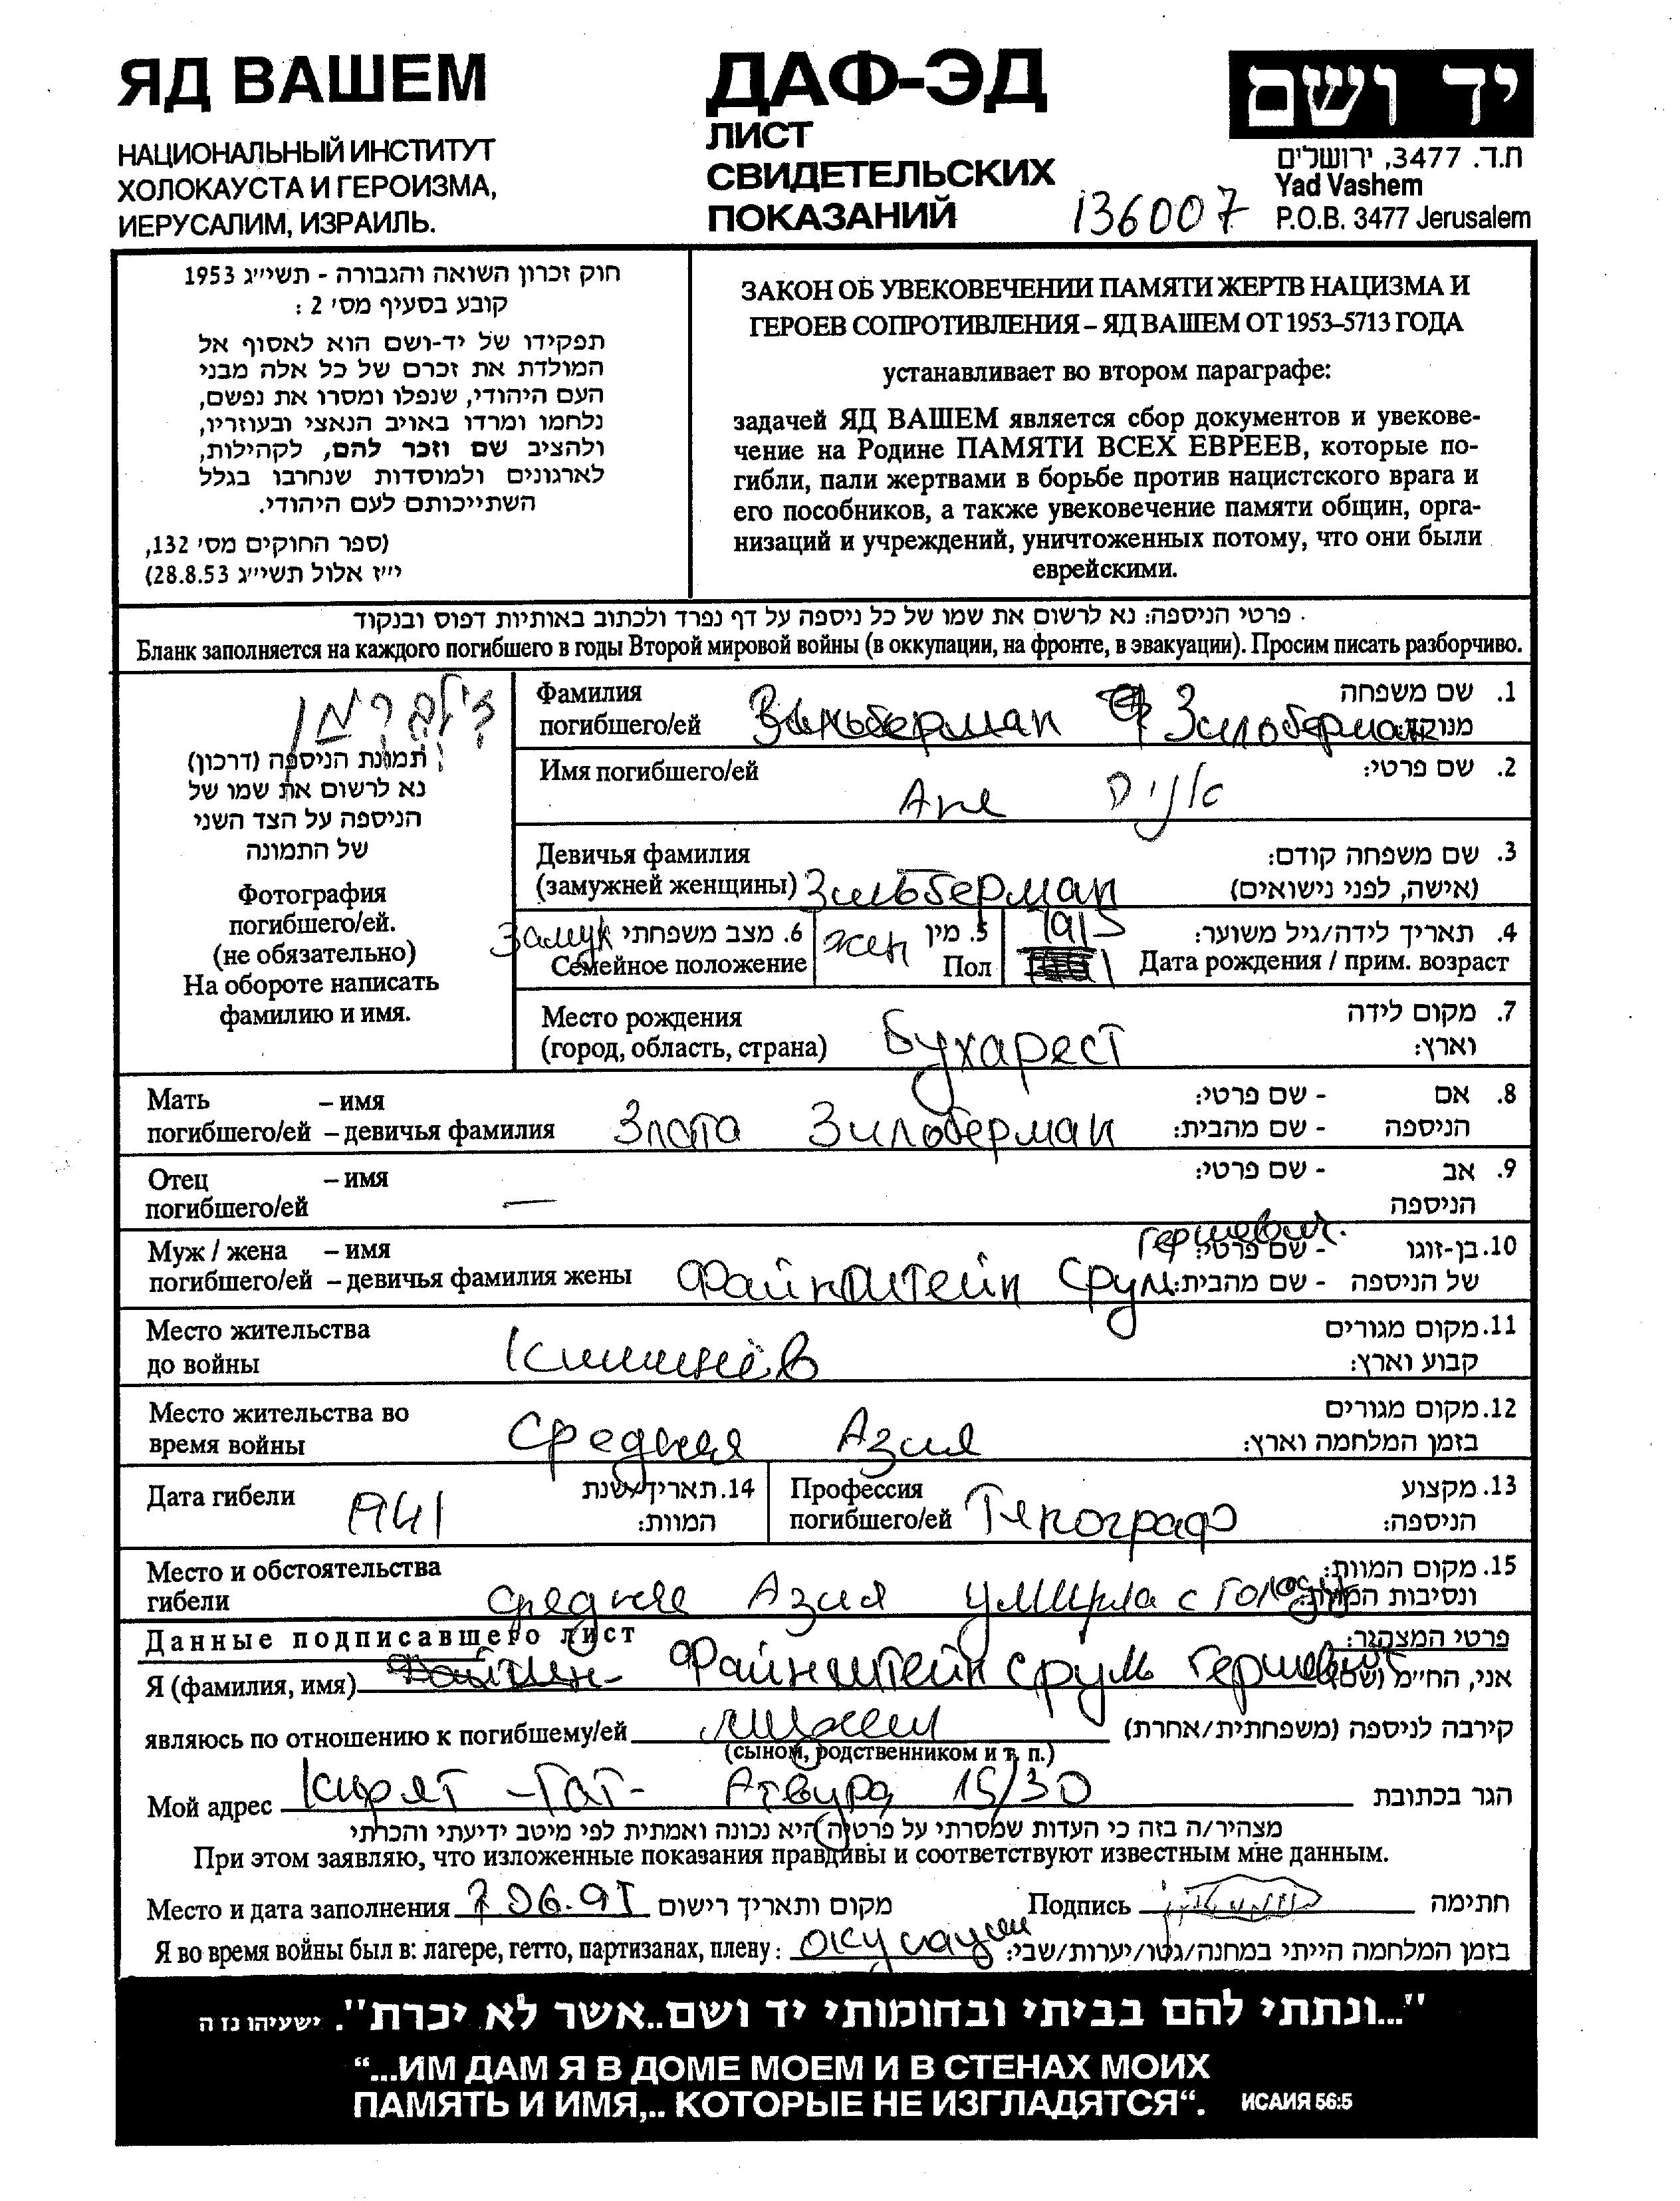 ЯД ВАШЕМ
НАЦИОНАЛЬНЫЙ ИНСТИТУТ
ХОЛОКАУСТА И ГЕРОИЗМА,
ИЕРУСАЛИМ, ИЗРАИЛЬ.
ДАФ-ЭД
ЛИСТ
СВИДЕТЕЛЬСКИХ
ПОКАЗАНИЙ
136007
יד ושם
ת.ד. 3477, ירושלים
Yad Vashem
P.O.B. 3477 Jerusalem
חוק זכרון השואה והגבורה - תשי״ג 1953
קובע בסעיף מס׳ 2 :
תפקידו של יד-ושם הוא לאסוף אל
המולדת את זכרם של כל אלה מבני
העם היהודי, שנפלו ומסרו את נפשם,
נלחמו ומרדו באויב הנאצי ובעוזריו,
ולהציב שם וזכר להם, לקהילות,
לארגונים ולמוסדות שנחרבו בגלל
השתייכותם לעם היהודי.
(ספר החוקים מס׳ 132,
י״ז אלול תשי״ג 28.8.53)
ЗАКОН ОБ УВЕКОВЕЧЕНИИ ПАМЯТИ ЖЕРТВ НАЦИЗМА И
ГЕРОЕВ СОПРОТИВЛЕНИЯ – ЯД ВАШЕМ ОТ 1953–5713 ГОДА
устанавливает во втором параграфе:
задачей ЯД ВАШЕМ является сбор документов и увекове-
чение на Родине ПАМЯТИ ВСЕХ ЕВРЕЕВ, которые по-
гибли, пали жертвами в борьбе против нацистского врага и
его пособников, а также увековечение памяти общин, орга-
низаций и учреждений, уничтоженных потому, что они были
еврейскими.
פרטי הניספה: נא לרשום את שמו של כל ניספה על דף נפרד ולכתוב באותיות דפוס ובנקוד
Бланк заполняется на каждого погибшего в годы Второй мировой войны (в оккупации, на фронте, в эвакуации). Просим писать разборчиво.
זילברמן
תמונת הניספה (דרכון)
נא לרשום את שמו של
הניספה על הצד השני
של התמונה
Фотография
погибшего/ей.
(не обязательно)
На обороте написать
фамилию и имя.
Фамилия 1. שם משפחה
погибшего/ей Зильберман Зильберман מנוקד
Имя погибшего/ей 2. שם פרטי:
Аня
Девичья фамилия 3. שם משפחה קודם:
(замужней женщины) Зильберман (אישה, לפני נישואים)
Замуж 6. מצב משפחתי жен 5. מין 1915 4. תאריך לידה/גיל משוער:
Семейное положение Пол Дата рождения / прим. возраст
Место рождения 7. מקום לידה
(город, область, страна) Бухарест וארץ:
Мать – имя 8. אם - שם פרטי:
погибшего/ей – девичья фамилия Злота Зильберман הניספה - שם מהבית:
Отец – имя 9. אב - שם פרטי:
погибшего/ей — הניספה
Муж / жена – имя Гершевич. 10. בן-זוגו - שם פרטי:
погибшего/ей – девичья фамилия жены Файнштейн Сруль של הניספה - שם מהבית:
Место жительства 11. מקום מגורים
до войны Кишинёв קבוע וארץ:
Место жительства во 12. מקום מגורים
время войны Средняя Азия בזמן המלחמה וארץ:
Дата гибели 1941 14. תאריך/שנת
המוות:
Профессия 13. מקצוע
погибшего/ей Типограф הניספה:
Место и обстоятельства 15. מקום המוות:
гибели Средняя Азия умирла с голоду ונסיבות המוות:
Данные подписавшего лист פרטי המצהיר:
Я (фамилия, имя) Файнштейн Сруль Гершевич אני, הח״מ (שם)
являюсь по отношению к погибшему/ей мужем קירבה לניספה (משפחתית/אחרת)
(сыном, родственником и т. п.)
Мой адрес Кирят-Гат- 15/30 הגר בכתובת
מצהיר/ה בזה כי העדות שמסרתי על פרטיה היא נכונה ואמתית לפי מיטב ידיעתי והכרתי
При этом заявляю, что изложенные показания правдивы и соответствуют известным мне данным.
Место и дата заполнения 7 06.91 מקום ותאריך רישום Подпись חתימה
Я во время войны был в: лагере, гетто, партизанах, плену: בזמן המלחמה הייתי במחנה/גטו/יערות/שבי:
"...ונתתי להם בביתי ובחומותי יד ושם..אשר לא יכרת". ישעיהו נו ה
“...ИМ ДАМ Я В ДОМЕ МОЕМ И В СТЕНАХ МОИХ
ПАМЯТЬ И ИМЯ,.. КОТОРЫЕ НЕ ИЗГЛАДЯТСЯ“. ИСАИЯ 56:5